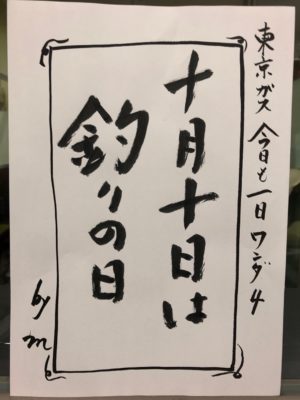 東京ガス 今日も一日 ワンダ4
十月十日は
釣りの日
by m